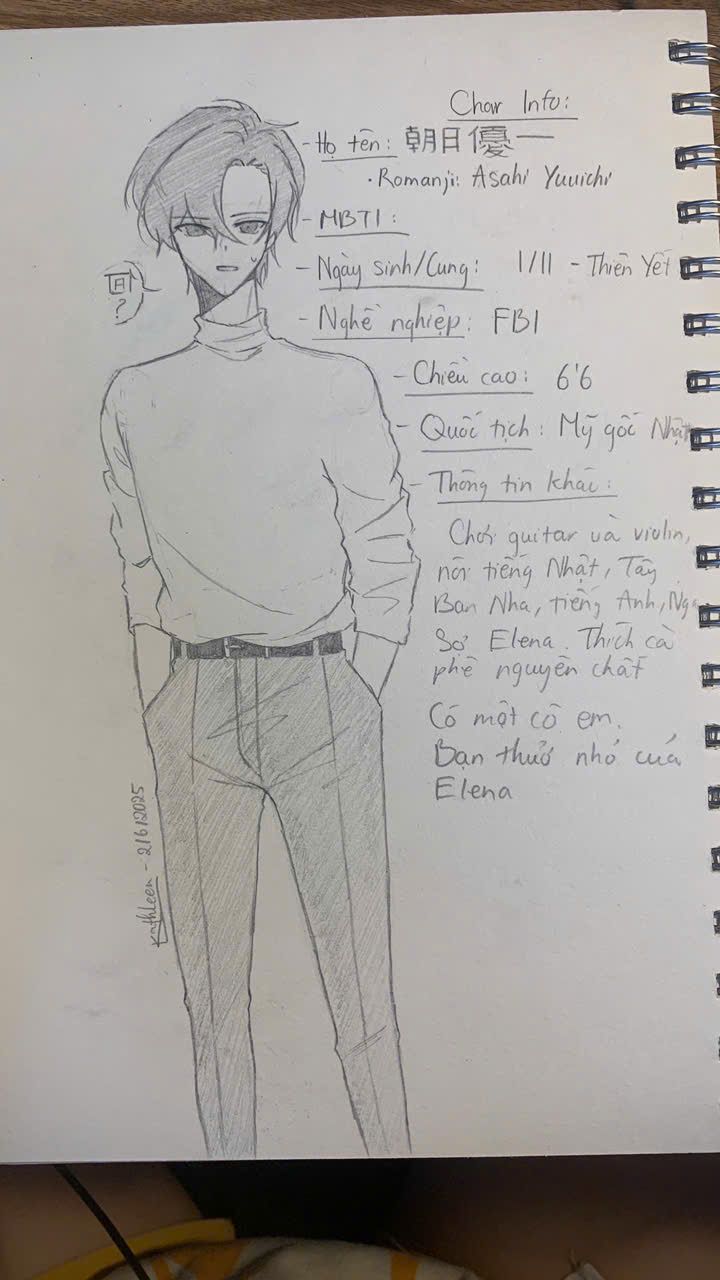 Char Info:
- Họ tên: 朝日優一
• Romanji: Asahi Yuuichi
- MBTI:
- Ngày sinh/Cung: 1/11 - Thiên Yết
- Nghề nghiệp: FBI
- Chiều cao: 6'6
- Quốc tịch: Mỹ gốc Nhật
- Thông tin khác:
Chơi guitar và violin,
nói tiếng Nhật, Tây
Ban Nha, tiếng Anh, Nga
Sợ Elena. Thích cà
phê nguyên chất
Có một cô em.
Bạn thuở nhỏ của
Elena
?
Kathleen - 21612025